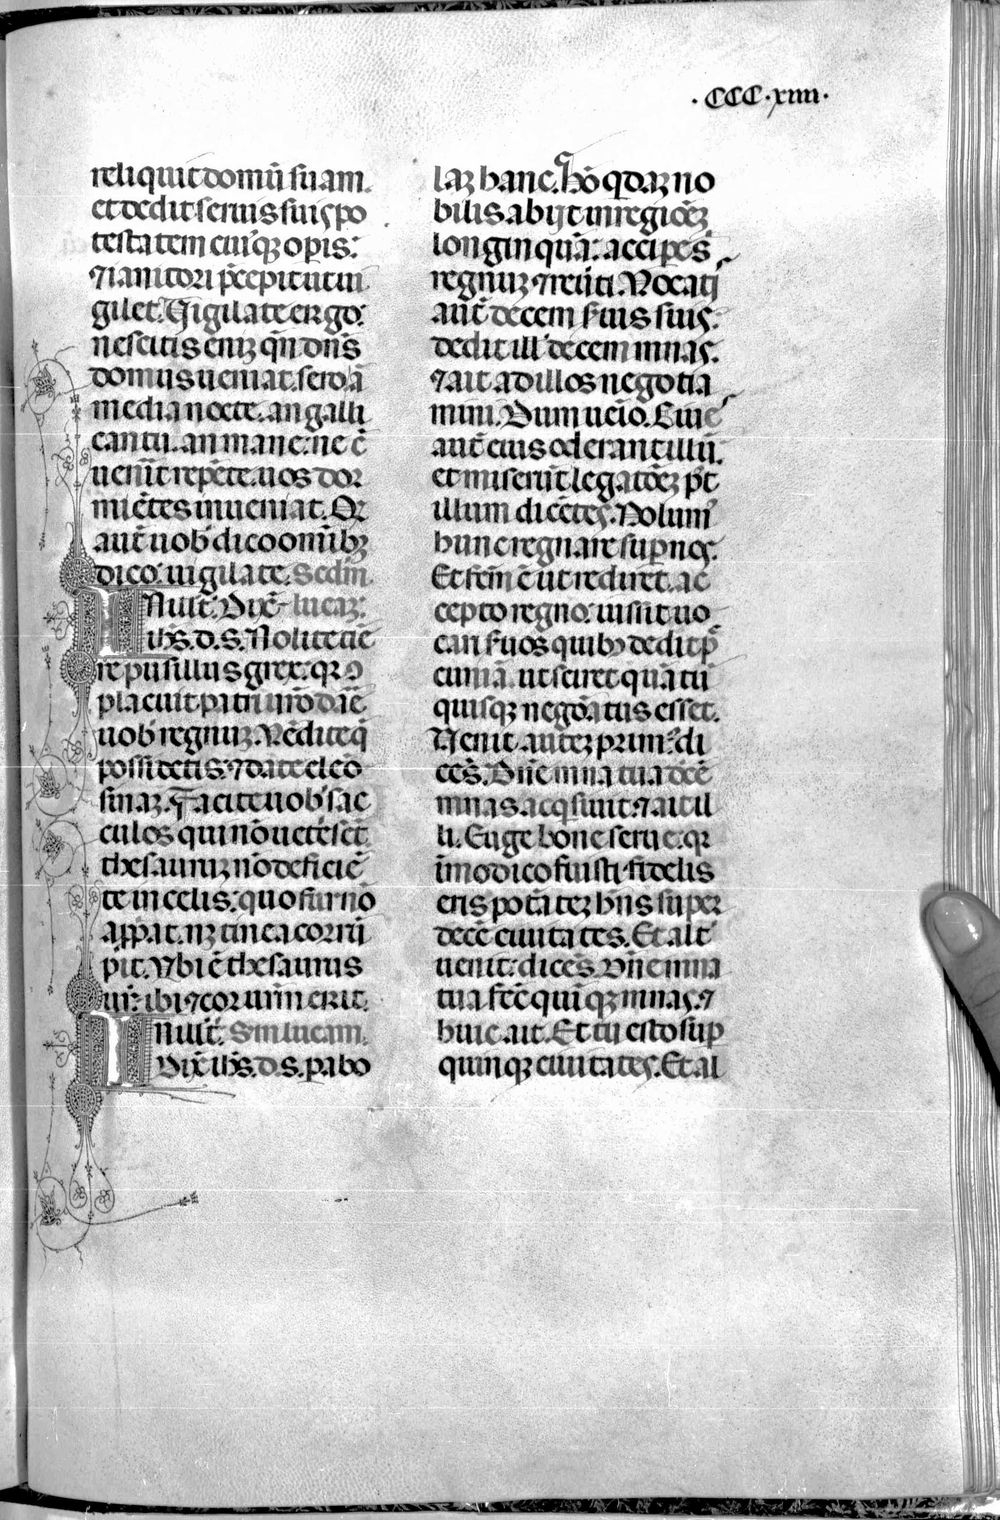 ·CCC·xiiii·
reliquit domū suam.
et dedit seruis suis po
testatem cuiusq̧ opis:
⁊ ianitori p̄cepit ut ui
gilet. Vigilate ergo:
nescitis eniꝫ qn̄ dn̄s
domus ueniat. sero ā
media nocte. an galli
cantu. an mane: ne cū
uen̄it repēte. uos dor
miētes inueniat. Qꝫ
aut̄ uob̓ dico om̄ibꝫ
dico. uigilate. Sed̄m
In illt̄. Dix̄ lucaꝫ:
ih̄s. d. s. Nolite tiē
re pusillus grex: qꝛ ɔ
placuit patri ur̄o daē
uob̓ regnuꝫ. Vēdite q̄
possidetis: ⁊ date eleō
sinaꝫ. Facite uob̓ sac
culos qui nō uetēsct̄.
thesauruꝫ nō deficiē
te in celis: quo fur nō
app̄at. nꝫ tinea corrū
pit. Vbi ē thesaurus
ur̄: ibi ⁊ cor urm̄ erit.
In illt̄. Sm̄ lucam.
Dix̄ ih̄s. d. s. pabo
laꝫ hanc. Hō qdaꝫ no
bilis abijt in regiōeꝫ
longinquā: accipe s̄
regnuꝫ ⁊ reūti. Vocatꝭ
aut̄ decem s̄uis suis:
dedit ill̓ decem mnas.
⁊ ait ad illos negotia
mini. Dum uēio. Ciue
aut̄ eius oderant illū.
et miserūt legatōeꝫ p̓t
illum dicētes. Nolum̓
hunc regnare sup nos.
Et fcm̄ ē ut rediret. ac
cepto regno: iussit uo
cari s̄uos quibꝫ dedit p̄
cuniā. ut sciret quātū
quisqꝫ negōatus esset.
Venit auteꝫ prim̓. di
cēs. Dn̄e mna tua decē
mnas acq̓siuit. ⁊ ait il
li. Euge bone serue: qꝛ
ī modico fuisti fidelis
eris potāteꝫ hn̄s super
decē ciuitates. Et alt̓
uenit: dicēs. Dn̄e mna
tua fēc quīqꝫ mnas. ⁊
huic ait. Et tu esto sup
quinqꝫ ciuitates. Et al